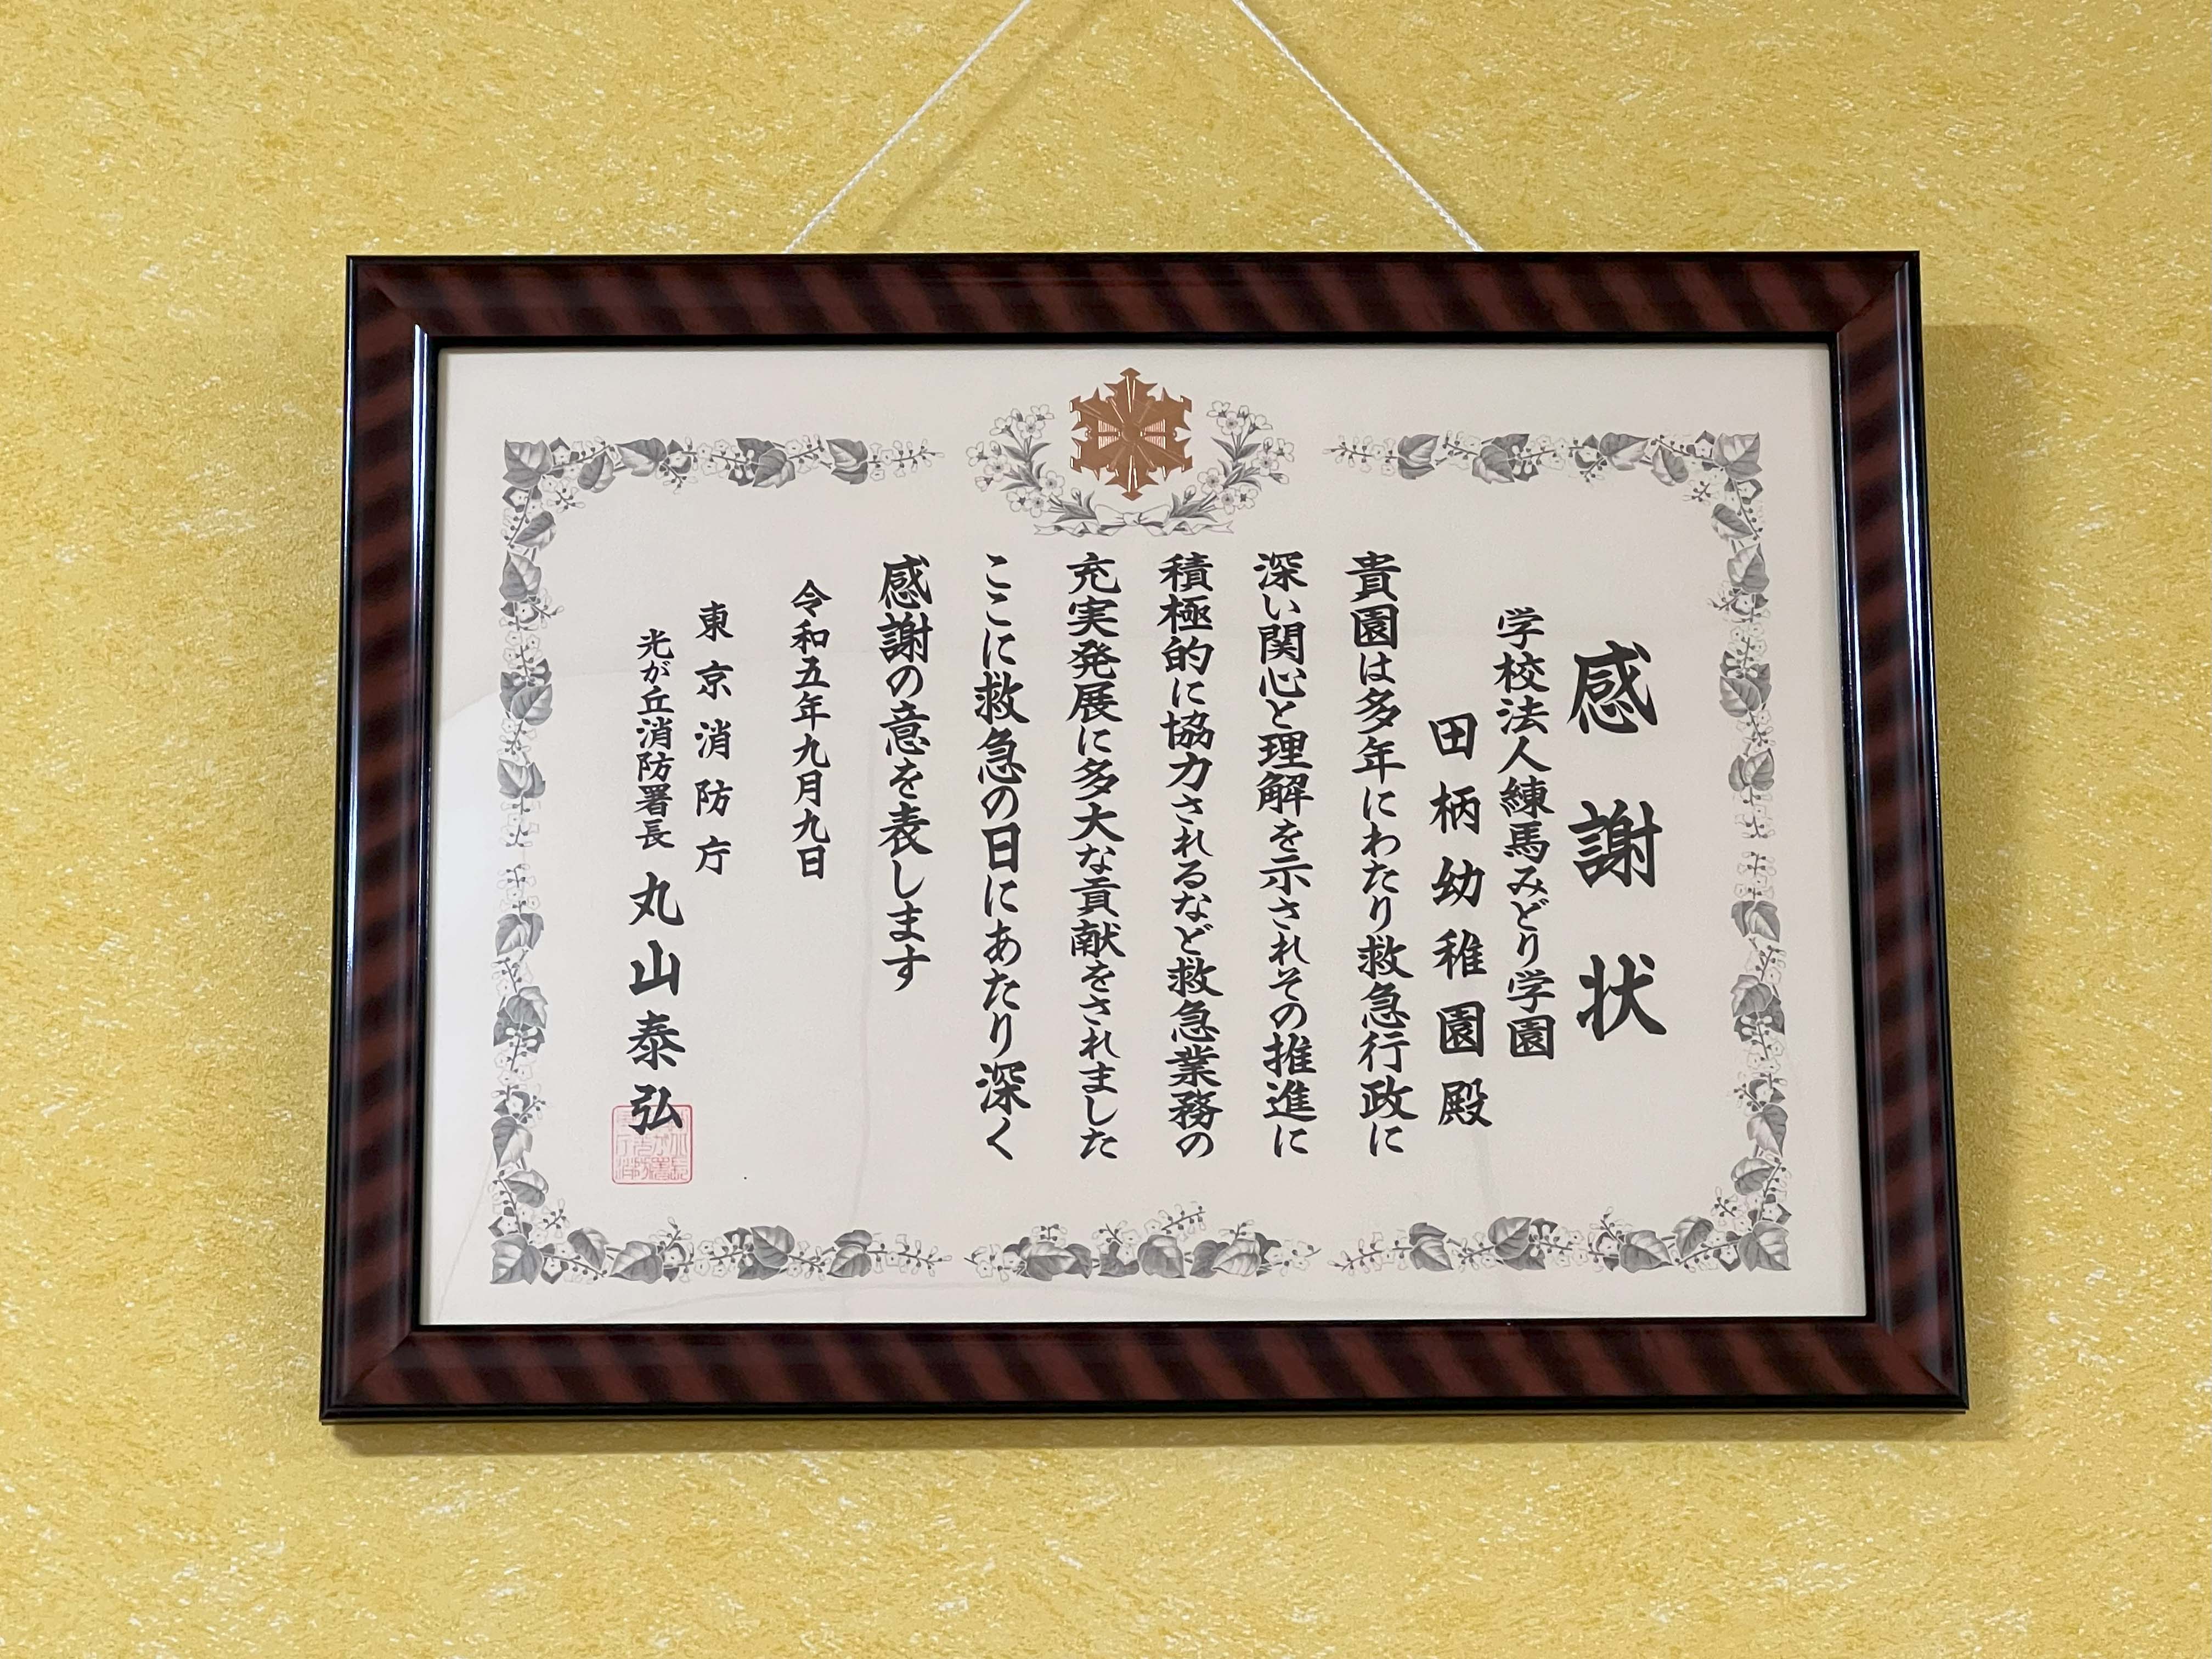 感謝状
学校法人練馬みどり学園
田柄幼稚園殿
貴園は多年にわたり救急行政に
深い関心と理解を示されその推進に
積極的に協力されるなど救急業務の
充実発展に多大な貢献をされました
ここに救急の日にあたり深く
感謝の意を表します
令和五年九月九日
東京消防庁
光が丘消防署長 丸山泰弘